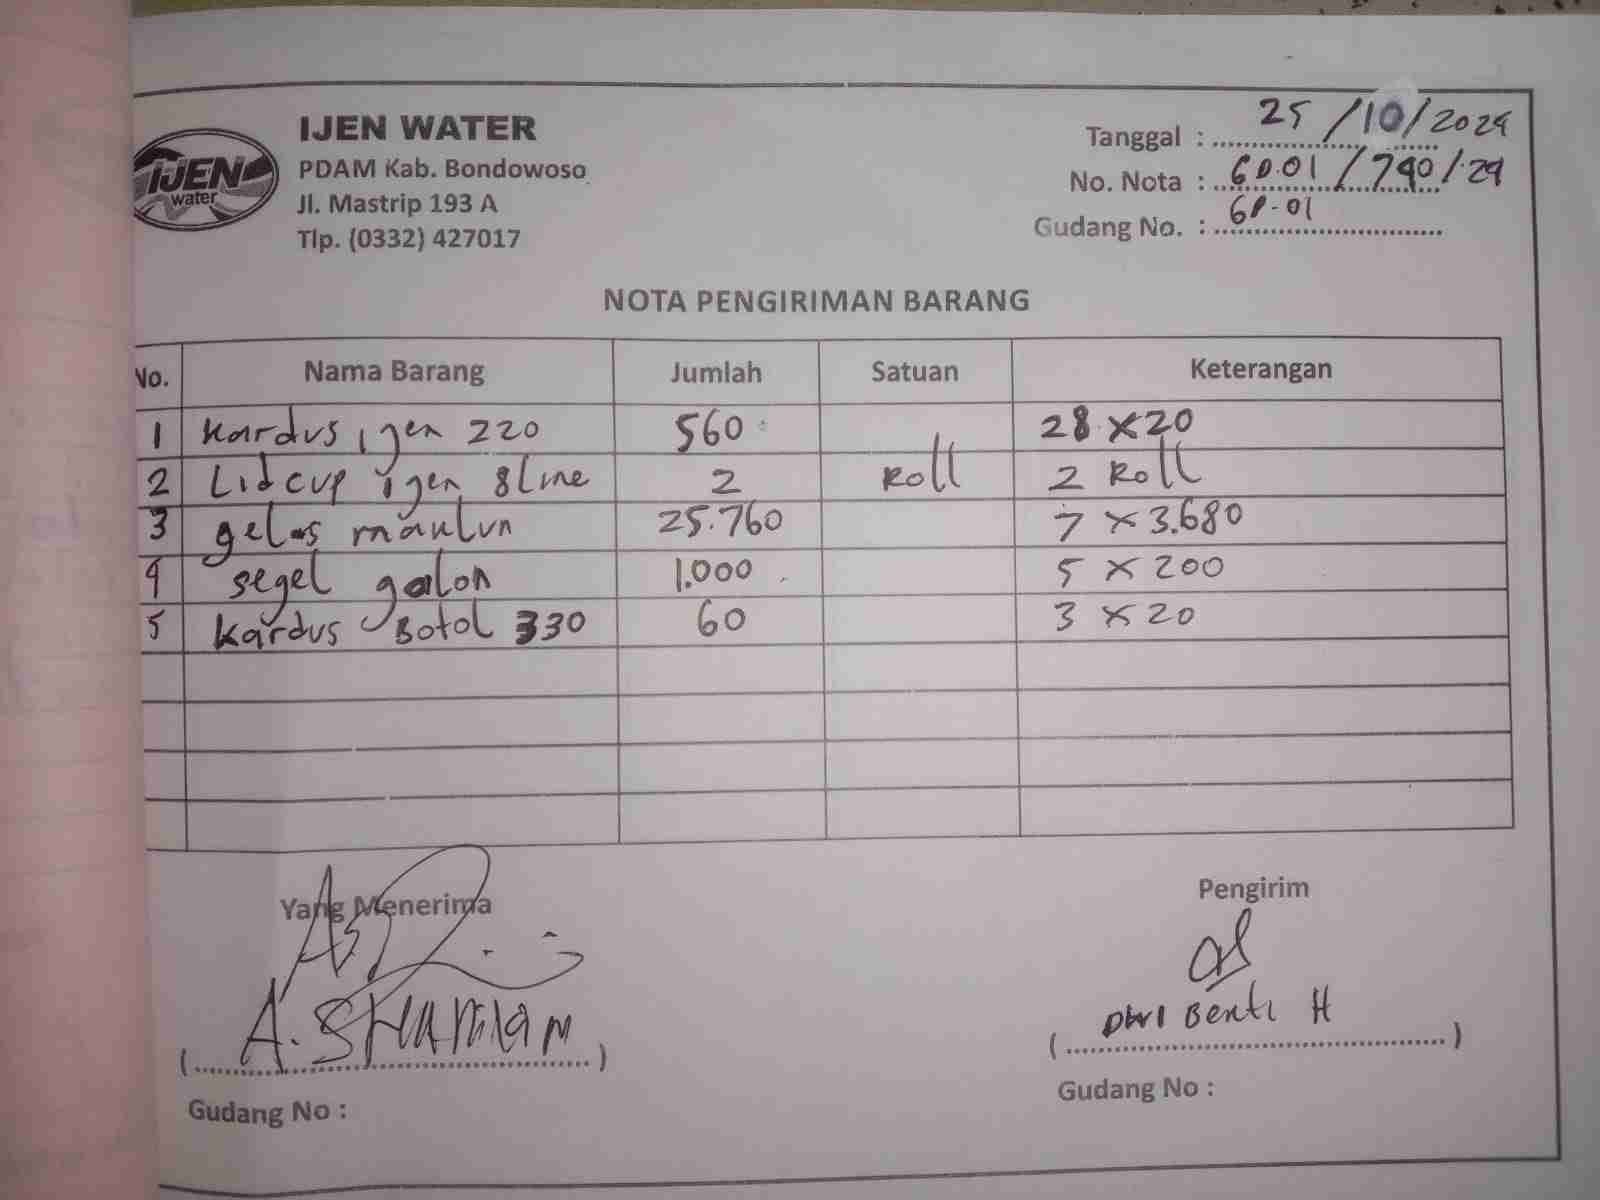 IJEN
water
IJEN WATER
PDAM Kab. Bondowoso
Jl. Mastrip 193 A
Tlp. (0332) 427017
Tanggal : 25/10/2024
No. Nota : GD.01/740/.24
Gudang No. : GD-01
NOTA PENGIRIMAN BARANG
No. Nama Barang Jumlah Satuan Keterangan
1 Kardus ijen 220 560 28 x 20
2 Lidcup ijen 8line 2 Roll 2 Roll
3 gelas maklun 25.760 7 x 3.680
4 segel galon 1.000 5 x 200
5 Kardus Botol 330 60 3 x 20
Yang Menerima
(A.)
Gudang No :
Pengirim
(Dwi Benti H)
Gudang No :